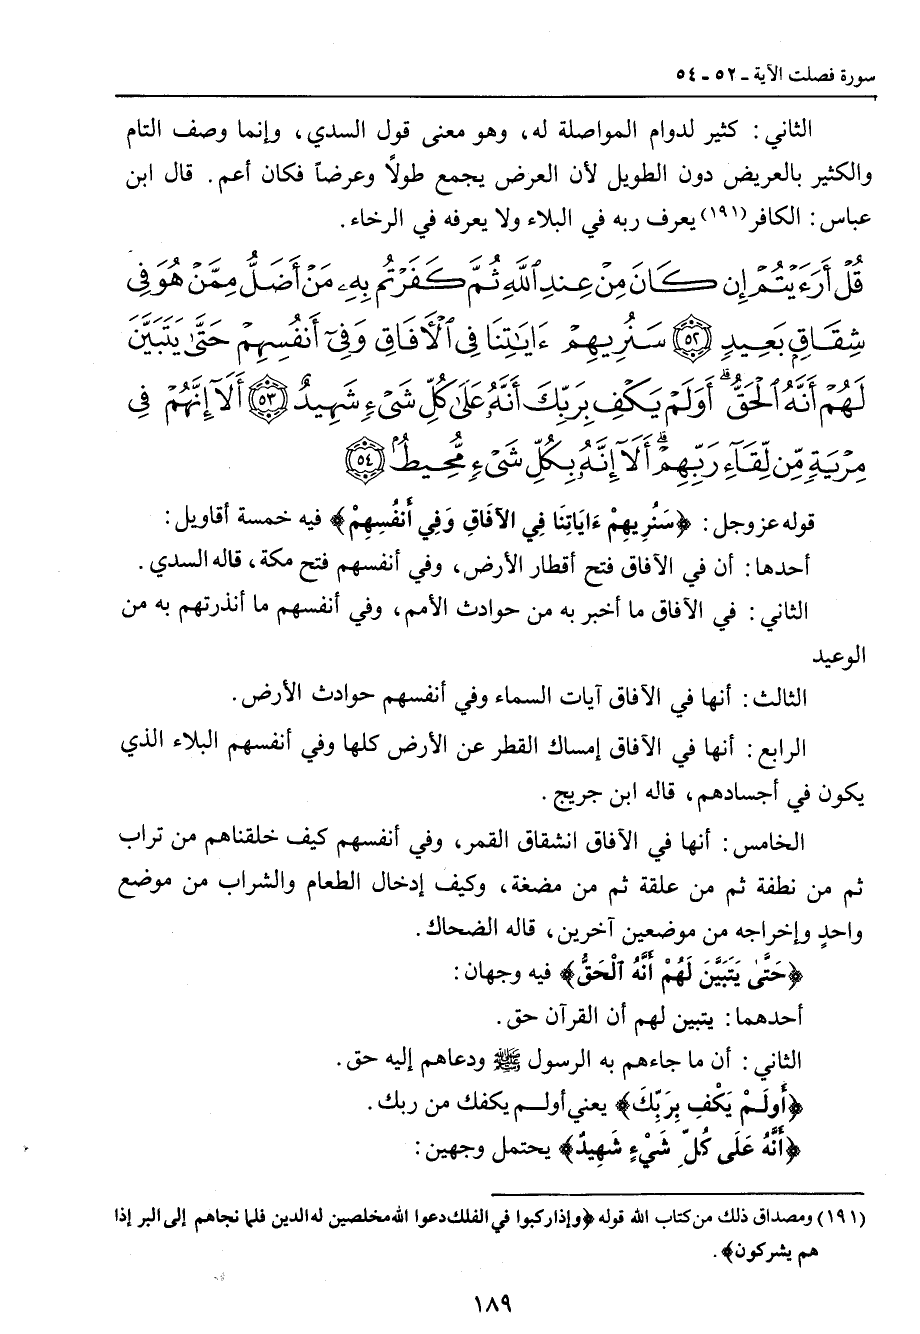 سورة فصلت الآية ـ ٥٢ ـ ٥٤
الثاني : كثير لدوام المواصلة له، وهو معنى قول السدي، وإنما وصف التام
والكثير بالعريض دون الطويل لأن العرض يجمع طولاً وعرضاً فكان أعم. قال ابن
عباس : الكافر(١٩١) يعرف ربه في البلاء ولا يعرفه في الرخاء.
قُلْ أَرَءَيْتُمْ إِن كَانَ مِنْ عِندِ ٱللَّهِ ثُمَّ كَفَرْتُم بِهِۦ مَنْ أَضَلُّ مِمَّنْ هُوَ فِى
شِقَاقٍۭ بَعِيدٍ ٥٢ سَنُرِيهِمْ ءَايَٰتِنَا فِى ٱلْأٓفَاقِ وَفِىٓ أَنفُسِهِمْ حَتَّىٰ يَتَبَيَّنَ
لَهُمْ أَنَّهُ ٱلْحَقُّۗ أَوَلَمْ يَكْفِ بِرَبِّكَ أَنَّهُۥ عَلَىٰ كُلِّ شَىْءٍ شَهِيدٌ ٥٣ أَلَآ إِنَّهُمْ فِى
مِرْيَةٍ مِّن لِّقَآءِ رَبِّهِمْۗ أَلَآ إِنَّهُۥ بِكُلِّ شَىْءٍ مُّحِيطٌۢ ٥٤
قوله عز وجل : ﴿سَنُرِيهِمْ ءَايَاتِنَا فِي الآفَاقِ وَفِي أَنفُسِهِمْ﴾ فيه خمسة أقاويل :
أحدها : أن في الآفاق فتح أقطار الأرض، وفي أنفسهم فتح مكة، قاله السدي.
الثاني : في الآفاق ما أخبر به من حوادث الأمم، وفي أنفسهم ما أنذرتهم به من
الوعيد
الثالث : أنها في الآفاق آيات السماء وفي أنفسهم حوادث الأرض.
الرابع : أنها في الآفاق إمساك القطر عن الأرض كلها وفي أنفسهم البلاء الذي
يكون في أجسادهم، قاله ابن جريج.
الخامس : أنها في الآفاق انشقاق القمر، وفي أنفسهم كيف خلقناهم من تراب
ثم من نطفة ثم من علقة ثم من مضغة، وكيف إدخال الطعام والشراب من موضع
واحدٍ وإخراجه من موضعين آخرين، قاله الضحاك.
﴿حَتَّىٰ يَتَبَيَّنَ لَهُمْ أَنَّهُ الْحَقُّ﴾ فيه وجهان :
أحدهما : يتبين لهم أن القرآن حق.
الثاني : أن ما جاءهم به الرسول ﷺ ودعاهم إليه حق.
﴿أَوَلَمْ يَكْفِ بِرَبِّكَ﴾ يعني أولم يكفك من ربك.
﴿أَنَّهُ عَلَى كُلِّ شَيْءٍ شَهِيدٌ﴾ يحتمل وجهين :
(١٩١) ومصداق ذلك من كتاب الله قوله ﴿وإذا ركبوا في الفلك دعوا الله مخلصين له الدين فلما نجاهم إلى البر إذا
هم يشركون﴾.
١٨٩